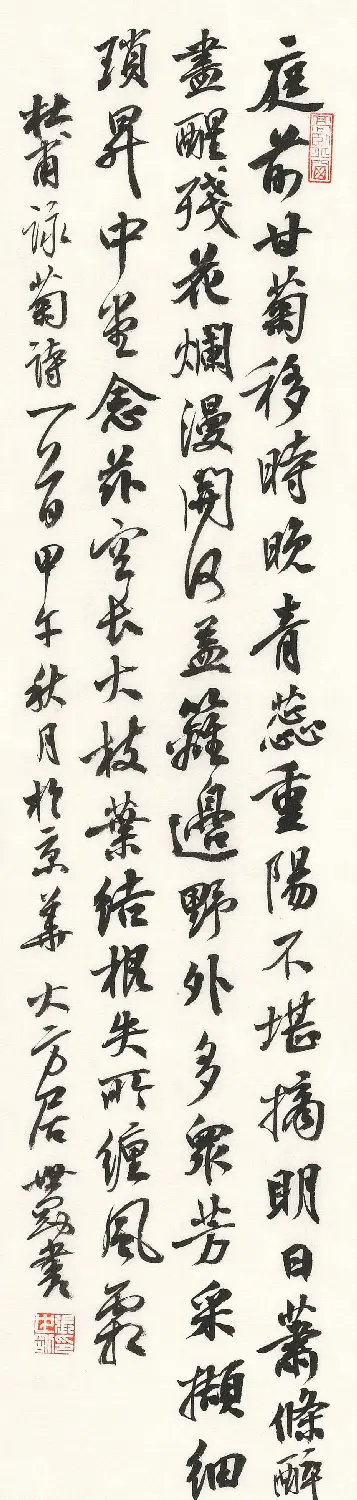 庭前甘菊移時晚青蕊重陽不堪摘明日蕭條醉
盡醒殘花爛漫開何益籬邊野外多眾芳采擷細
瑣昇中堂念茲空長大枝葉結根失所纏風霜
杜甫詠菊詩一首甲午秋月於京華大方居世書